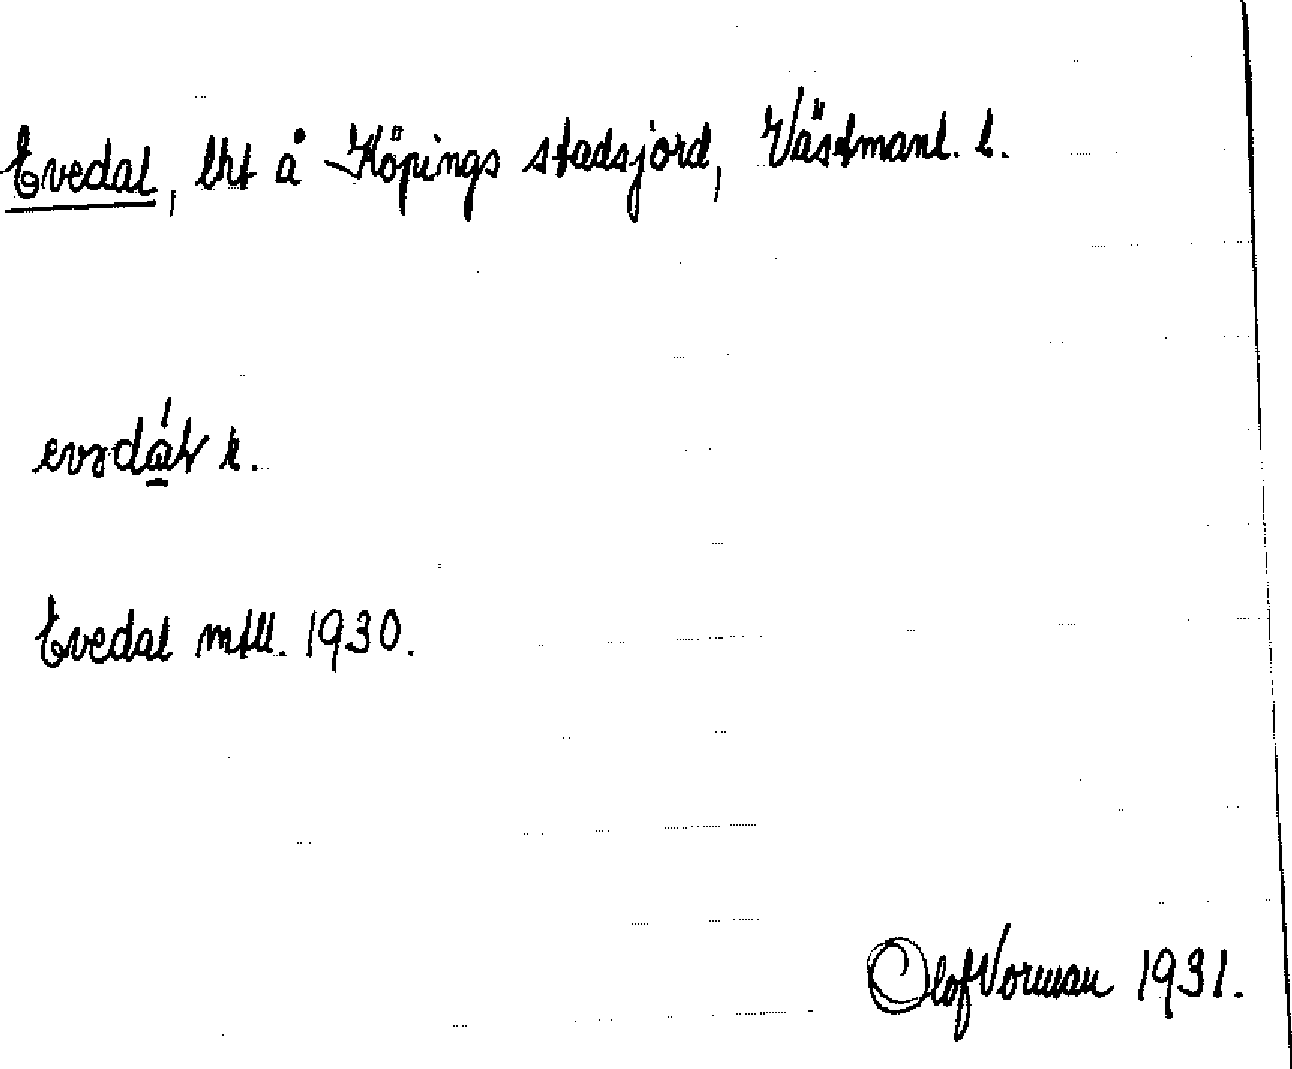 Evedal, lht å Köpings stadsjord, Västmanl. l.
evədál r.
Evedal mtll. 1930.
Olof Vorman 1931.